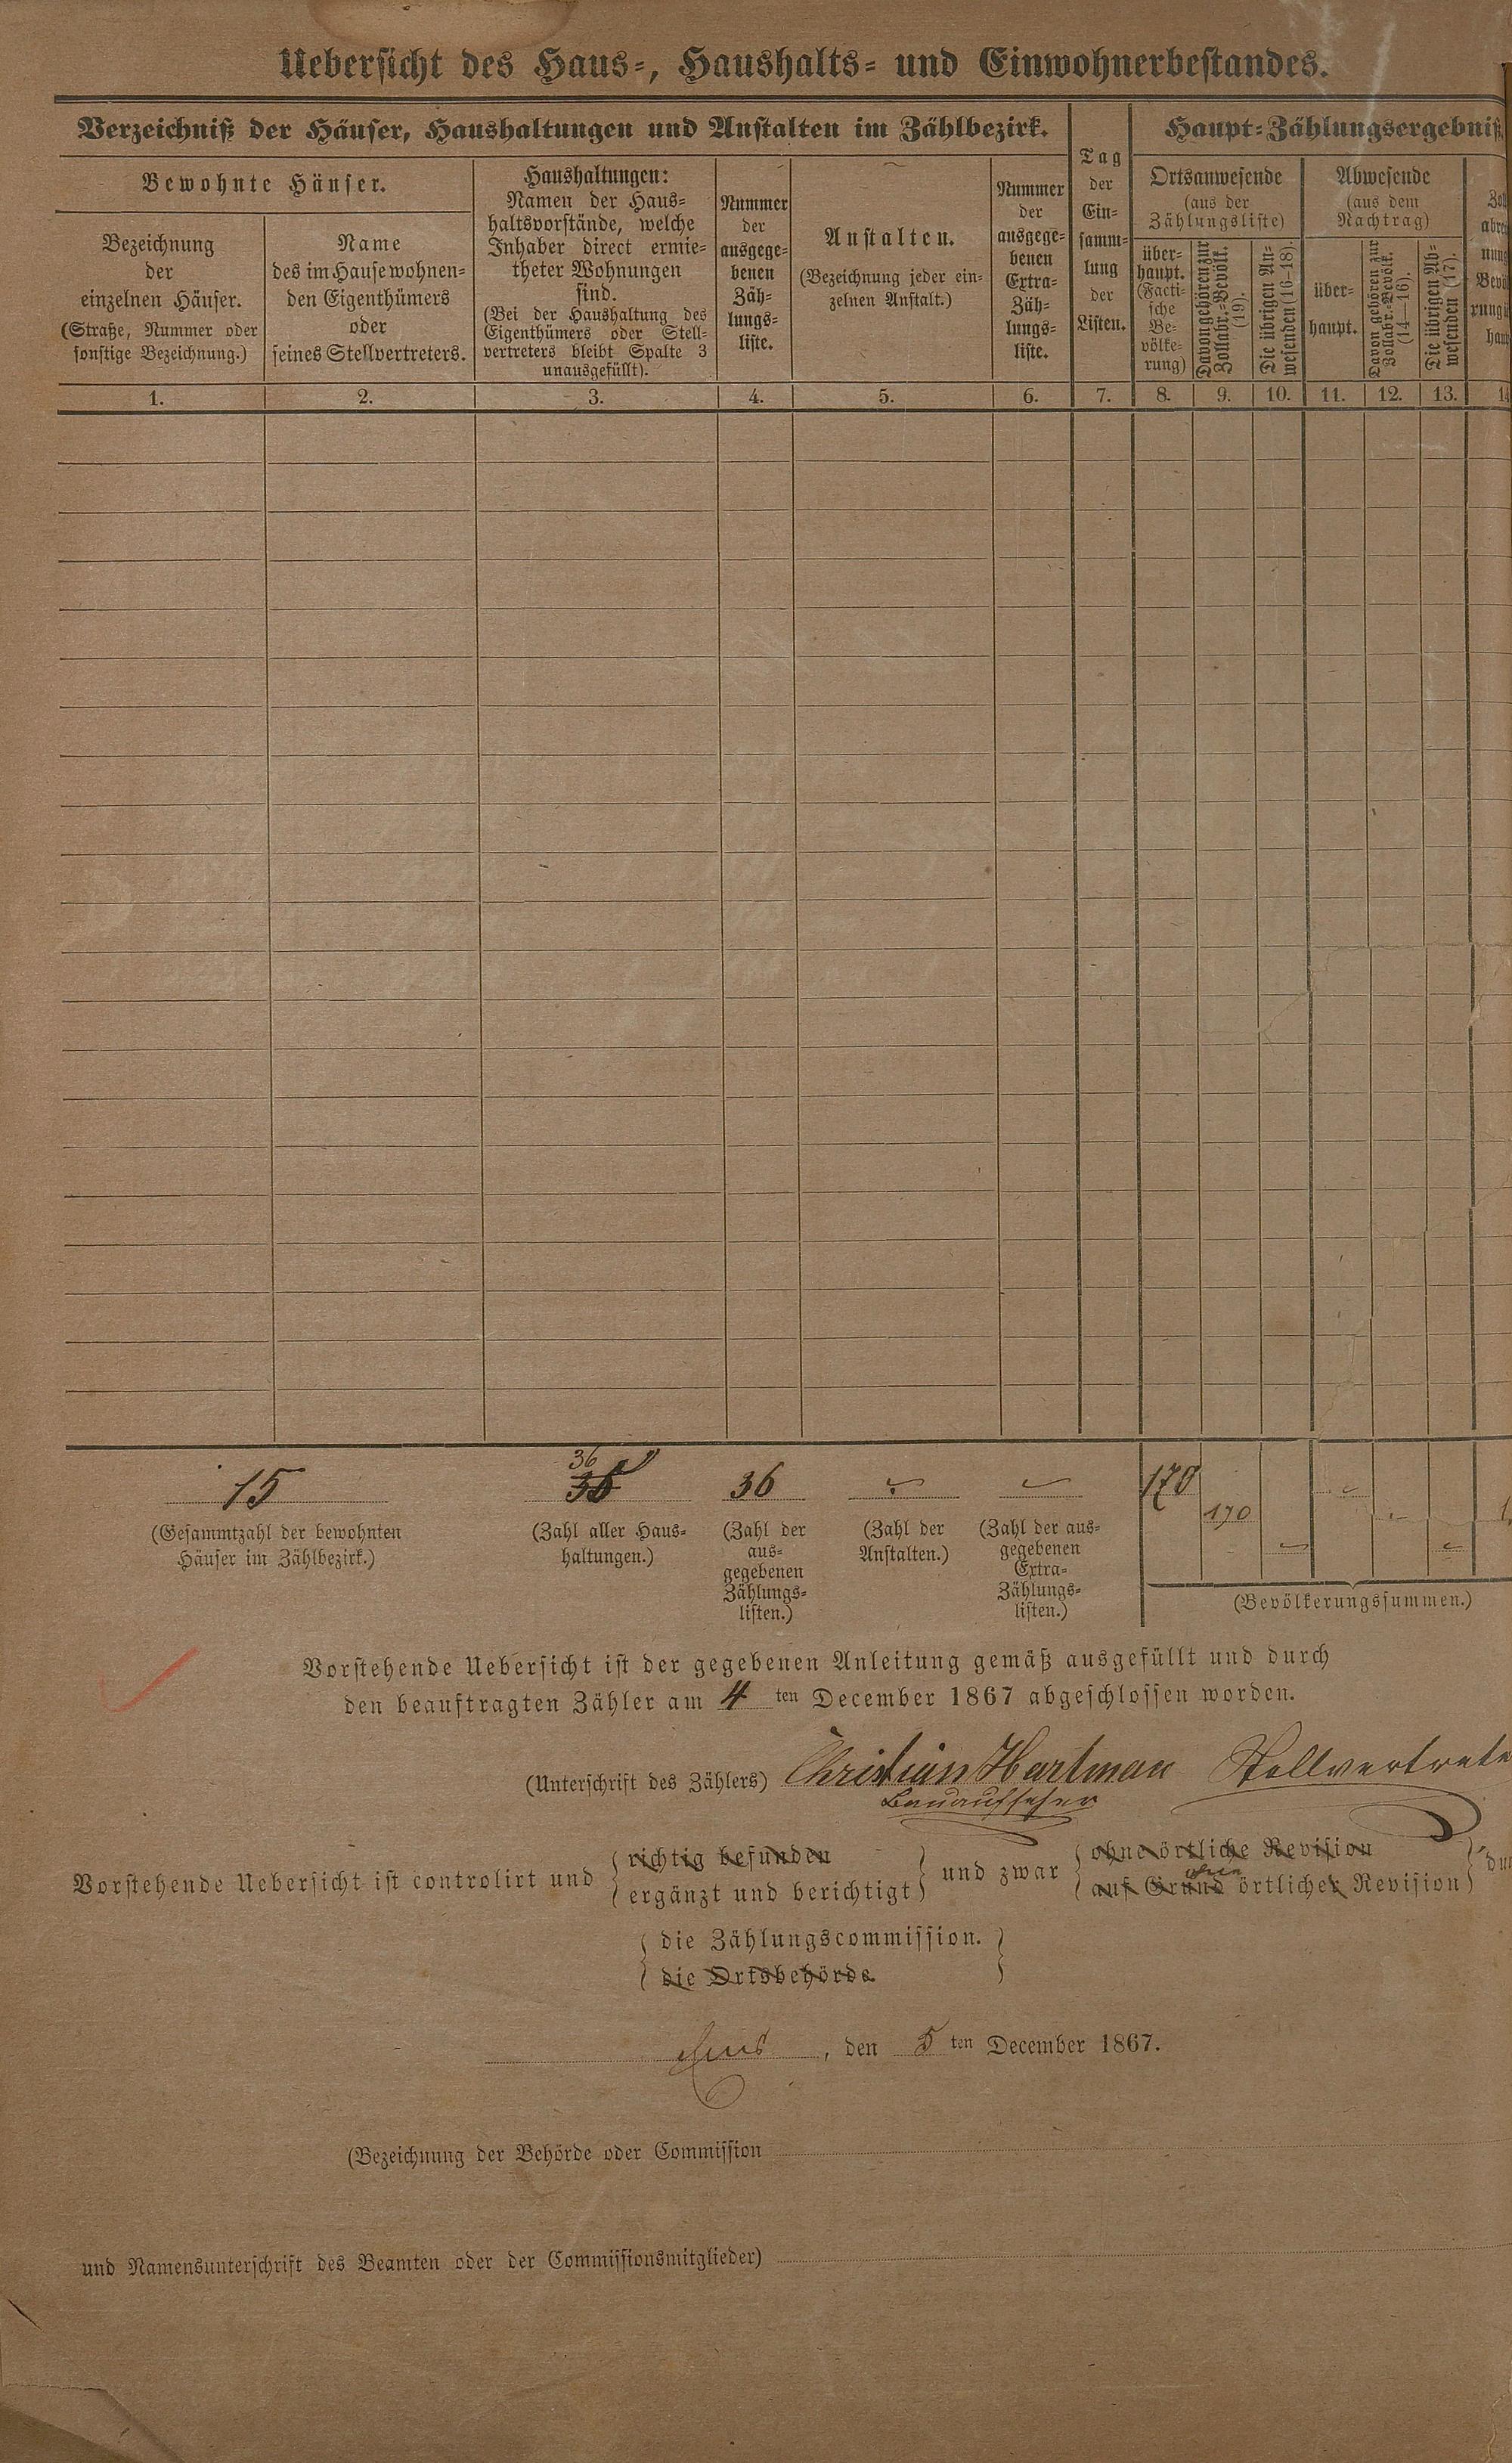 Uebersicht des Haus-, Haushalts- und Einwohnerbestandes.
Verzeichniß der Häuser, Haushaltungen und Anstalten im Zählbezirk.
Haupt-Zählungsergebniß
Bewohnte Häuser.
Bezeichnung
der
einzelnen Häuser.
(Straße, Nummer oder
sonstige Bezeichnung.)
Name
des im Hause wohnen-
den Eigenthümers
oder
seines Stellvertreters.
Haushaltungen:
Namen der Haus-
haltsvorstände, welche
Inhaber direct ermie-
theter Wohnungen
sind.
(Bei der Haushaltung des
Eigenthümers oder Stell-
vertreters bleibt Spalte 3
unausgefüllt).
Nummer
der
ausgege-
benen
Zäh-
lungs-
liste.
Anstalten.
(Bezeichnung jeder ein-
zelnen Anstalt.)
Nummer
der
ausgege-
benen
Extra-
Zäh-
lungs-
liste.
Tag
der
Ein-
samm-
lung
der
Listen.
Ortsanwesende
(aus der
Zählungsliste)
über-
haupt.
(Facti-
sche
Be-
völke-
rung)
Davon gehören zur
Zollabr.-Bevölk.
(19).
Die übrigen An-
wesenden (16-18).
Abwesende
(aus dem
Nachtrag)
über-
haupt.
Davon gehören zur
Zollabr.-Bevölk.
(14-16).
Die übrigen Ab-
wesenden (17).
Zoll
abre
nung
Bevö
rung ü
hau
1. 2. 3. 4. 5. 6. 7. 8. 9. 10. 11. 12. 13. 1
36
15 36 170
170
(Gesammtzahl der bewohnten
Häuser im Zählbezirk.)
(Zahl aller Haus-
haltungen.)
(Zahl der
aus-
gegebenen
Zählungs-
listen.)
(Zahl der
Anstalten.)
(Zahl der aus-
gegebenen
Extra-
Zählungs-
listen.)
(Bevölkerungssummen.)
Vorstehende Uebersicht ist der gegebenen Anleitung gemäß ausgefüllt und durch
den beauftragten Zähler am 4 ten December 1867 abgeschlossen worden.
(Unterschrift des Zählers) Christian Hartman Stellvertrete
Bauaufseher
Vorstehende Uebersicht ist controlirt und
richtig befunden
ergänzt und berichtigt
und zwar
ohne örtliche Revision
ohne
auf Grund örtlicher Revision
du
die Zählungscommission.
die Ortsbehörde.
Ems, den 5 ten December 1867.
(Bezeichnung der Behörde oder Commission
und Namensunterschrift des Beamten oder der Commissionsmitglieder)